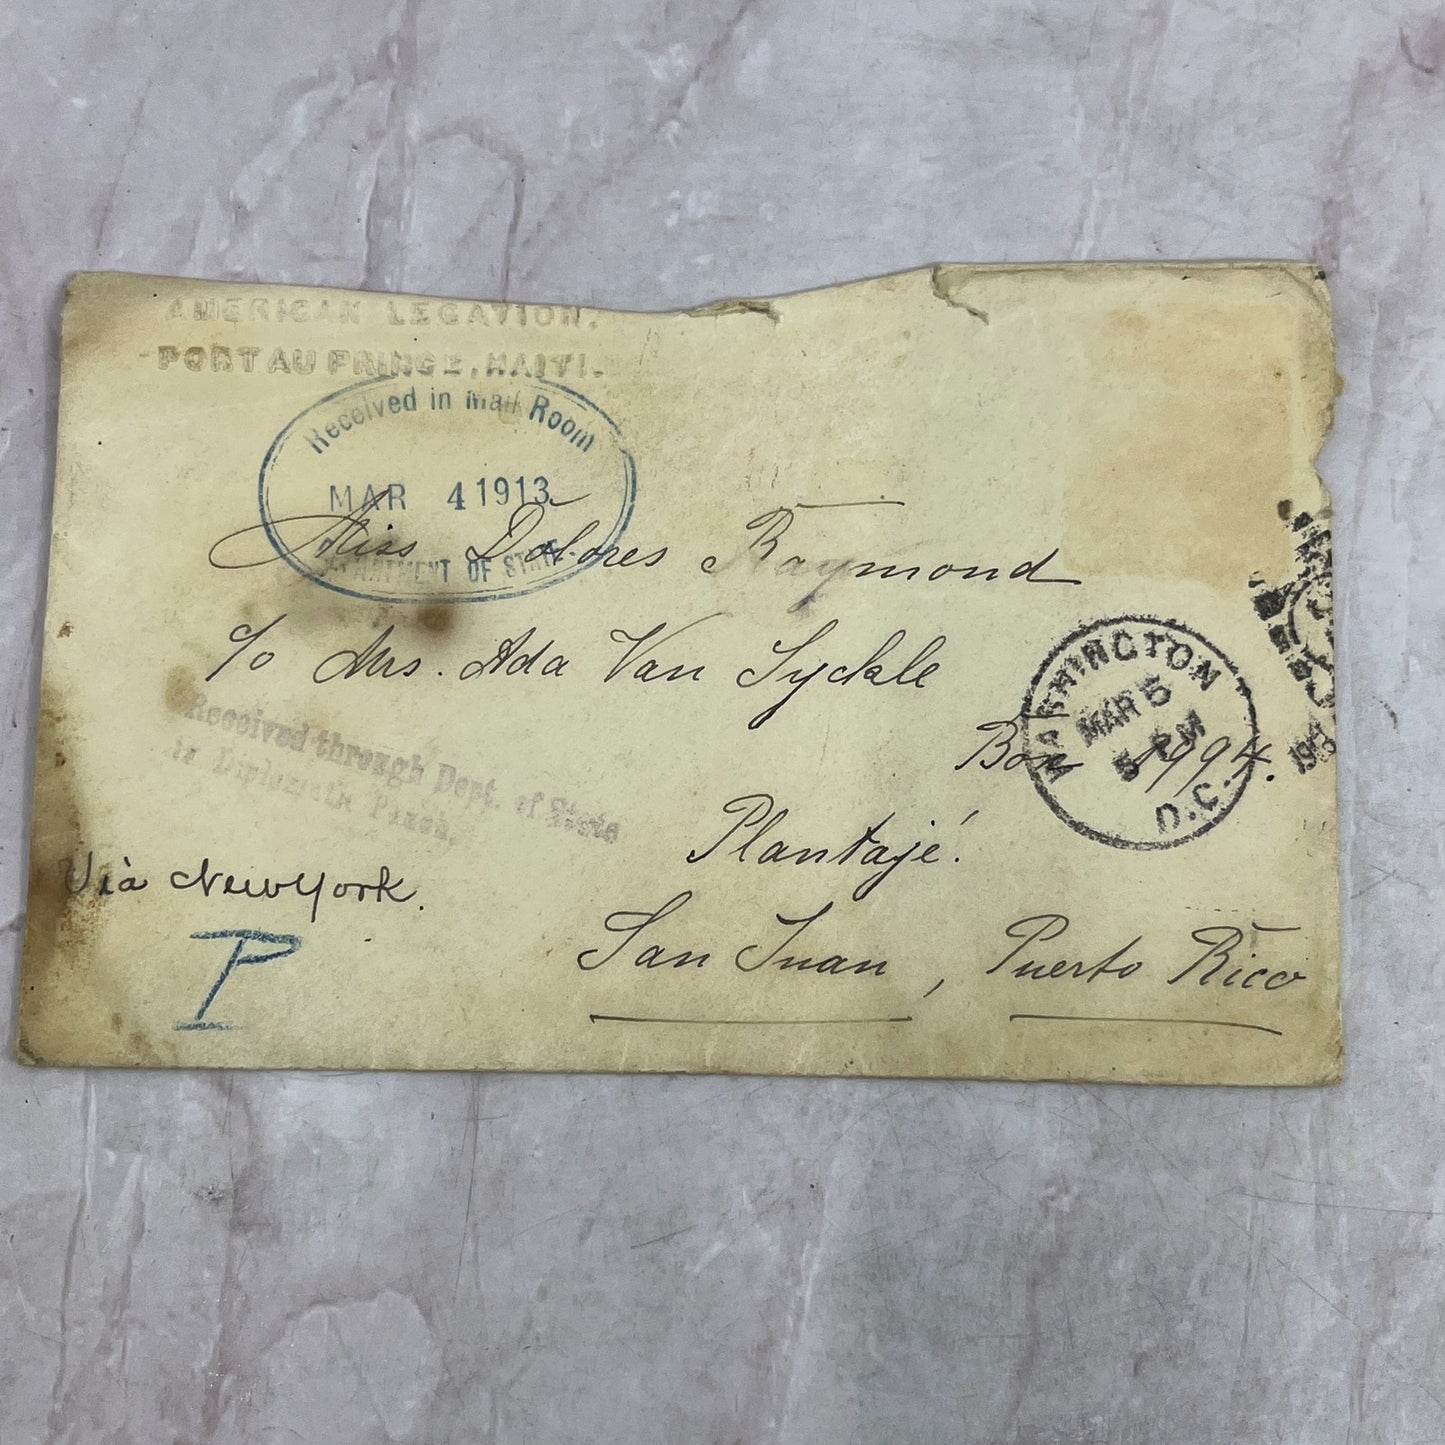 AMERICAN LEGATION.
PORT AU PRINCE, HAITI.
Received in Mail Room
MAR 4 1913
DEPARTMENT OF STATE.
Miss Dolores Raymond
c/o Mrs. Ada Van Syckle
Box 1994.
Plantajé.
San Juan, Puerto Rico
WASHINGTON
MAR 5
5 PM
D.C.
Received through Dept. of State
in Diplomatic Pouch.
Vià New York.
P